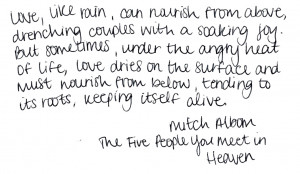 Love, like rain, can nourish from above,
drenching couples with a soaking joy.
But sometimes, under the angry heat
of life, love dries on the surface and
must nourish from below, tending to
its roots, keeping itself alive.
Mitch Albom
The Five People You meet in
Heaven